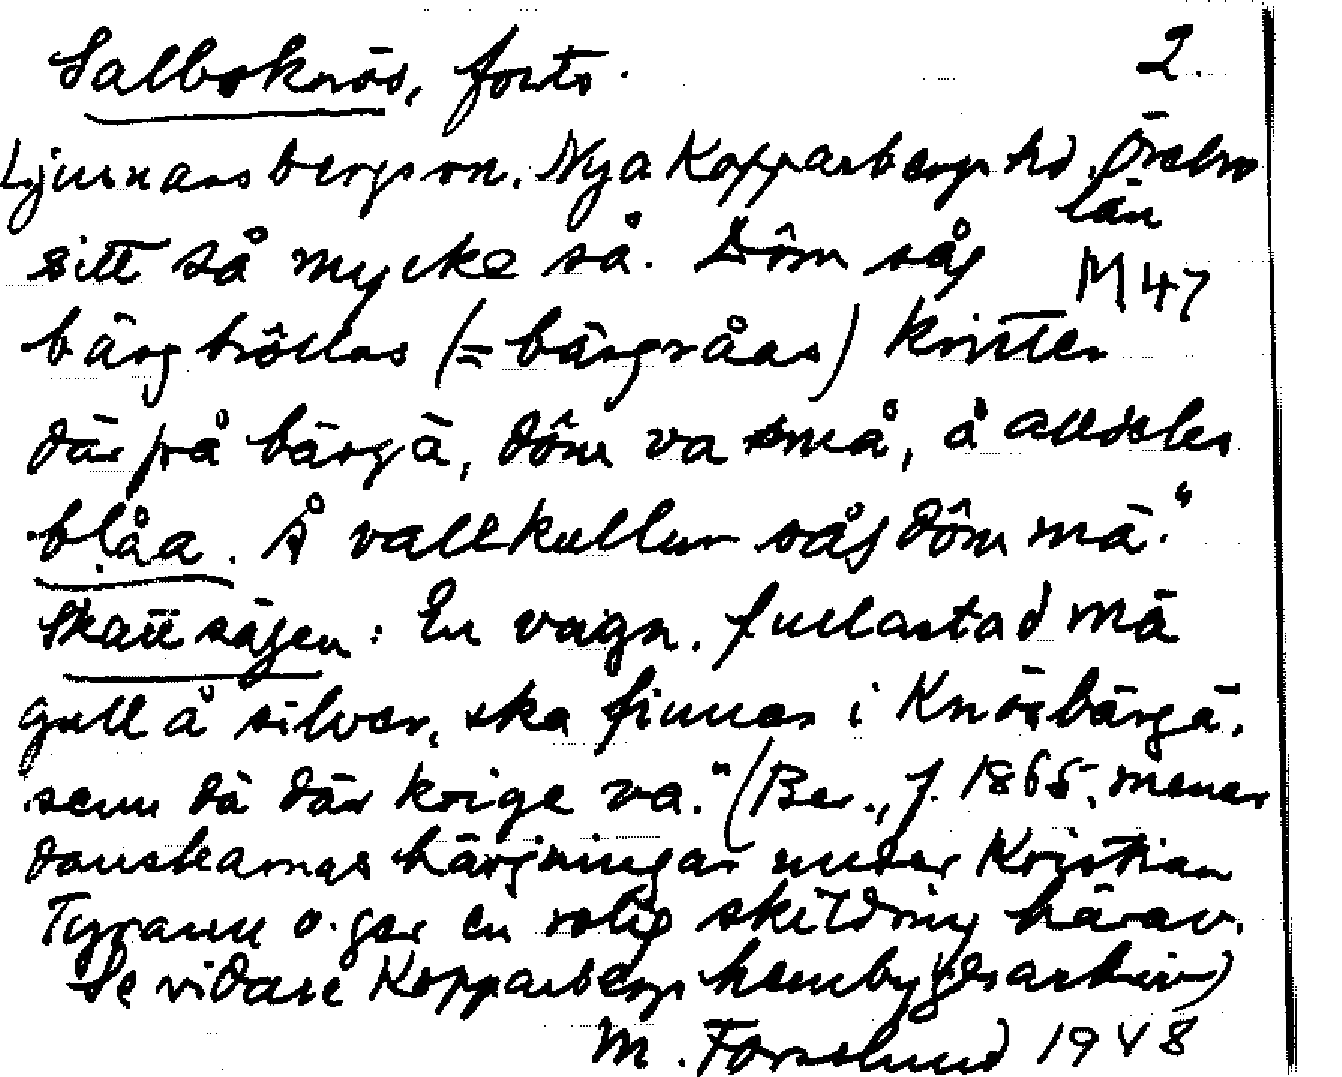 Salboknös, forts. 2.
Ljusnarsbergs sn. Nya Kopparbergs hd. Örebro
län
sitt så mycke så. Dôm såg M 47
bärgtrôllas (= bärgråas) kritter
där på bärgä, dôm va små, å alldeles
blåa. Å vallkullur såg dôm mä."
Skattsägen: En vagn, fullastad mä
gull å silver, ska finnas i Knösbärgä,
senn dä där krige va." (Ber., f. 1865, menar
danskarnas härjningar under Kristian
Tyrann o. ger en rolig skildring härav.
Se vidare Kopparbergs hembygdsarkiv)
M. Forslund 1948